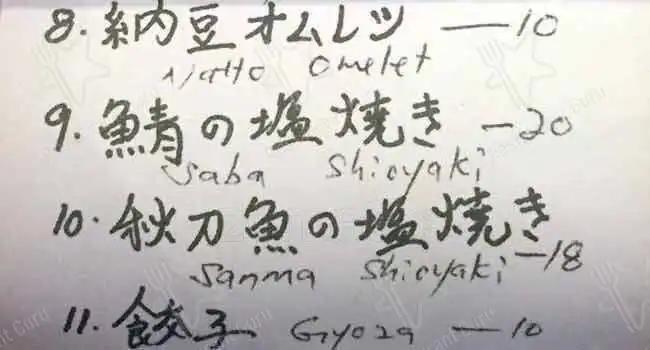 8. 納豆オムレツ — 10
Natto Omelet
9. 鯖の塩焼き — 20
Saba Shioyaki
10. 秋刀魚の塩焼き — 18
Sanma Shioyaki
11. 餃子 Gyoza — 10